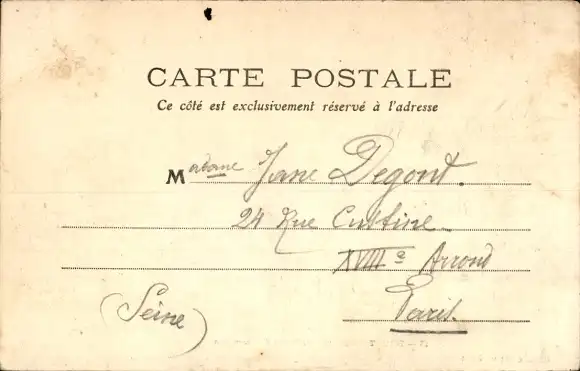 CARTE POSTALE
Ce côté est exclusivement réservé à l'adresse
Madame Jane Degont.
24 Rue Custine
XVIIIe Arrond
Paris.
(Seine)